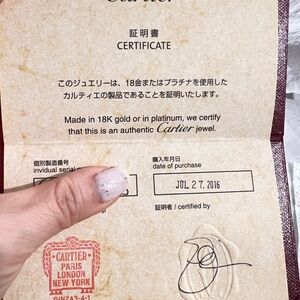 Cartier
証明書
CERTIFICATE
このジュエリーは、18金またはプラチナを使用した
カルティエの製品であることを証明いたします。
Made in 18K gold or in platinum, we certify
that this is an authentic Cartier jewel.
個別製造番号
invidual serial
購入年月日
date of purchase
JUL 27. 2016
証明者 / certified by
CARTIER
PARIS
LONDON
NEW YORK
GINZA3-4-1